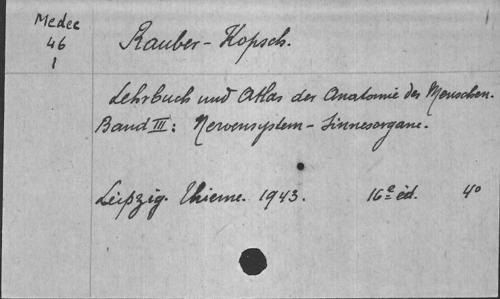 Medec
46
1
Rauber-Kopsch.
Lehrbuch und Atlas der Anatomie des Menschen.
Band III: Nervensystem - Sinnesorgane.
Leipzig. Thieme. 1943. 16e éd. 4°